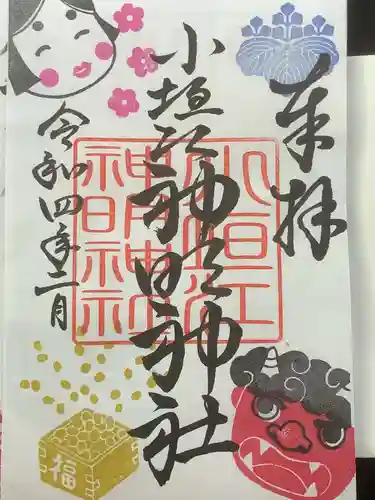 奉拝
小垣江神明神社
令和四年二月
小垣江
神明神社
福